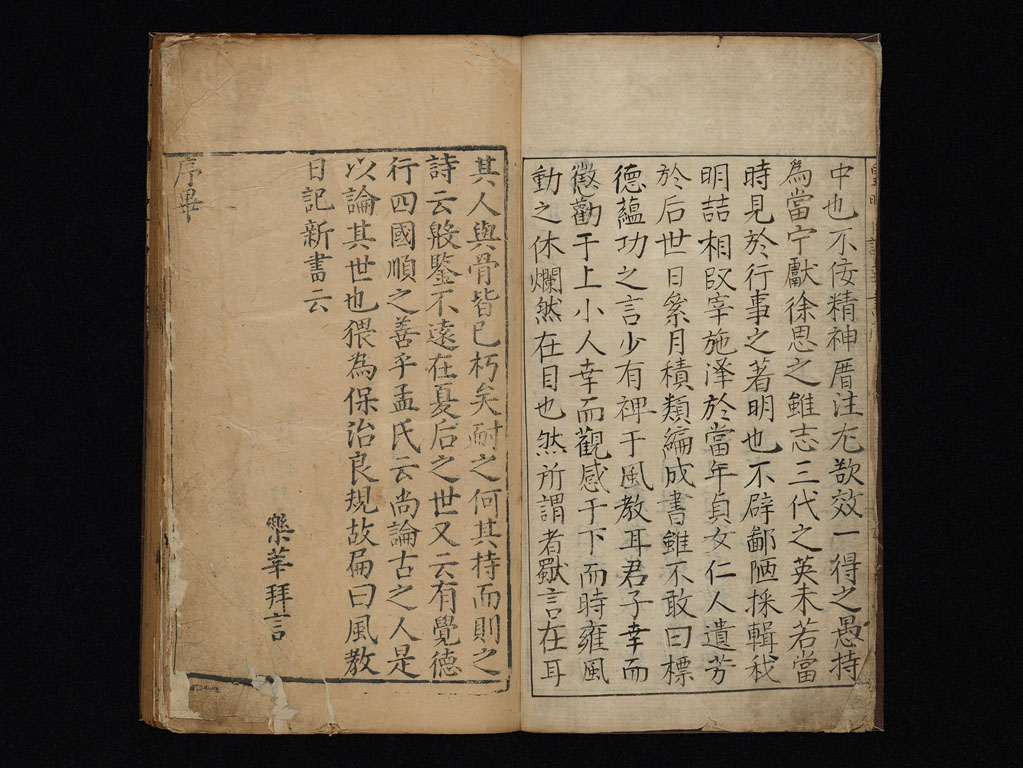 中也不佞精神厝注尤欲效一得之愚持
為當宁獻徐思之雖志三代之英未若當
時見於行事之著明也不辟鄙陋採輯我
明喆相叚宰施澤於當年貞女仁人遺芳
於后世日絫月積類編成書雖不敢曰標
德蘊功之言少有裨于風教耳君子幸而
懲勸于上小人幸而觀感于下而時雍風
動之休爛然在目也然所謂者獸言在耳
其人與骨皆已朽矣耐之何其持而則之
詩云殷鑒不遠在夏后之世又云有覺德
行四國順之善乎孟氏云尚論古之人是
以論其世也猥為保治良規故扁曰風教
日記新書云
樂莘拜言
序畢